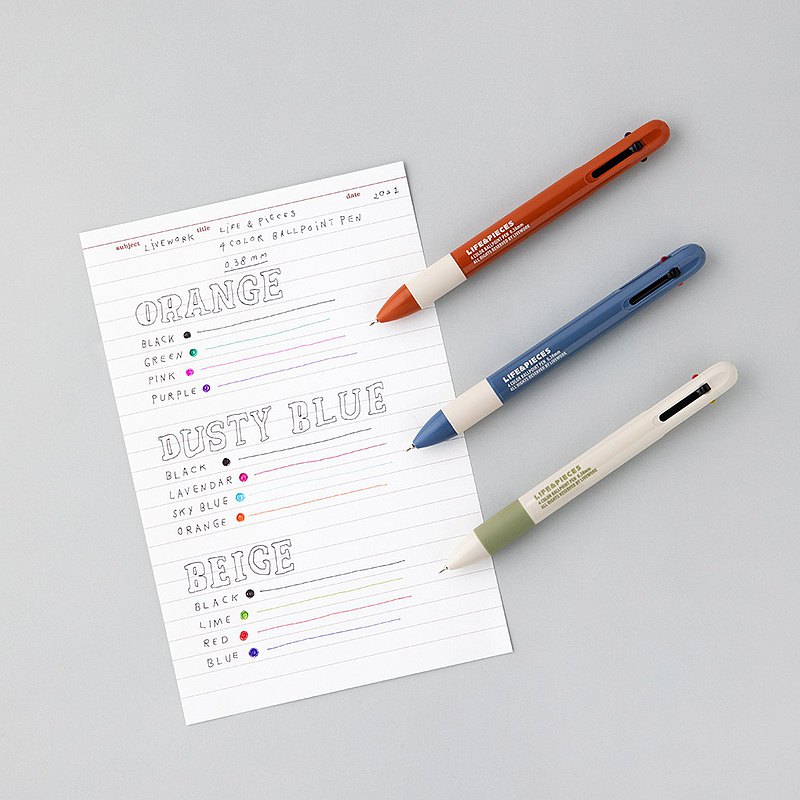 subject LIVEWORK title LIFE & PIECES date 2021
4 COLOR BALLPOINT PEN
0.38 MM
ORANGE
BLACK
GREEN
PINK
PURPLE
DUSTY BLUE
BLACK
LAVENDAR
SKY BLUE
ORANGE
BEIGE
BLACK
LIME
RED
BLUE
LIFE&PIECES
4 COLOR BALLPOINT PEN 0.38mm
ALL RIGHTS RESERVED BY LIVEWORK
LIFE&PIECES
4 COLOR BALLPOINT PEN 0.38mm
ALL RIGHTS RESERVED BY LIVEWORK
LIFE&PIECES
4 COLOR BALLPOINT PEN 0.38mm
ALL RIGHTS RESERVED BY LIVEWORK